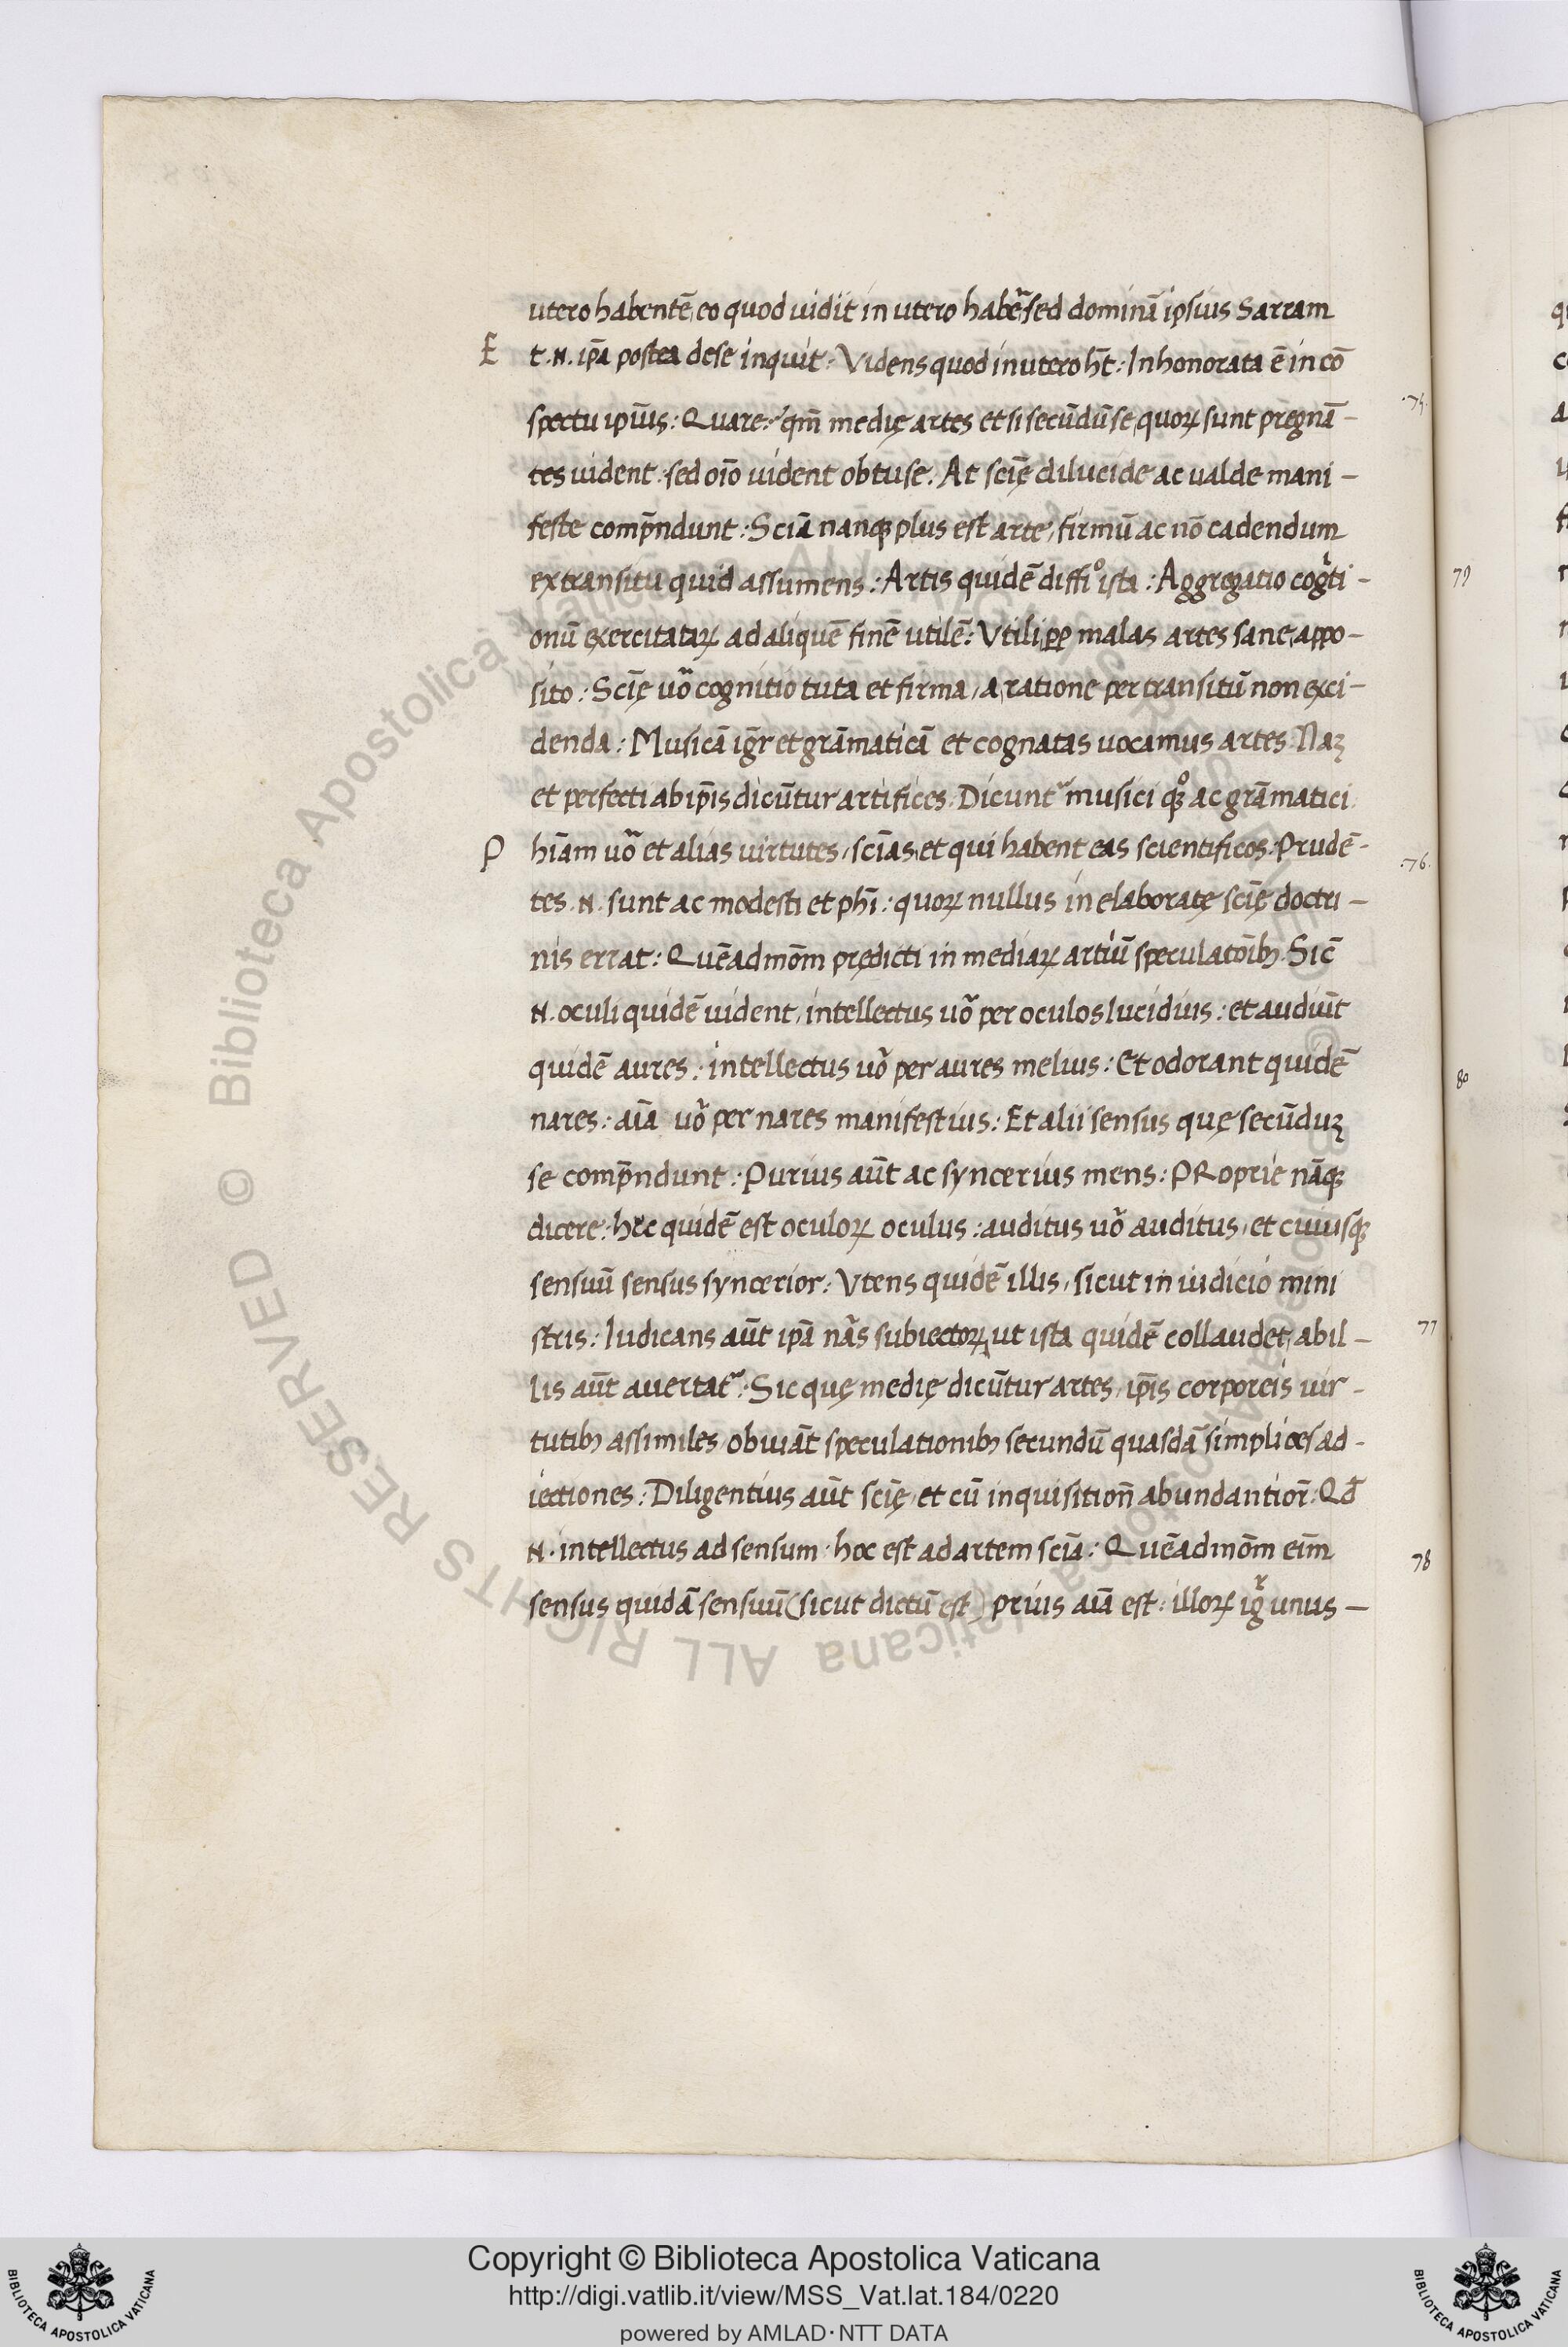 utero habentē, eo quod uidit in utero habēr̃ sed dominā ipsius Sarram
Et .N. ip̄a postea de se inquit: Videns quod in utero h̄t: Inhonorata ē in cō
spectu ipi̅us: Quare: qm̄ medię artes et si secūdū se, quoꝝ sunt pregnā-
tes uident. sed oīo uident obtuse: At scię̄ dilucide ac ualde mani-
feste comp̄ndunt: Scīa nanqꝫ plus est arte, firmū ac nō cadendum
ex transitu quid assumens: Artis quidē diffiᵒ ista: Aggregatio cog̃ti-
onū exercitataꝝ ad aliquē finē utilē: Vtili ꝓꝑ malas artes sane appo-
sito: Scię̄ uõ cognitio tuta et firma, a ratione per transitū non exci-
denda: Musicā igr̄ et grāmaticā et cognatas uocamus artes. Naꝫ
et perfecti ab ip̄is dicūtur artifices. Dicunt᷑ musici qꝫᵒ ac grāmatici
Phīam uõ et alias uirtutes, scīas, et qui habent eas scientificos: Prudē-
tes .N. sunt ac modesti et phī: quoꝝ nullus in elaboratę scię̄ doctri-
nis errat: Quēadmōm prędicti in mediaꝝ artiū speculatōibꝫ. Sic̄
.N. oculi quidē uident, intellectus uõ per oculos lucidius: et audiūt
quidē aures: intellectus uõ per aures melius: Et odorant quidē
nares: aīa uõ per nares manifestius: Et alii sensus quę secūduꝫ
se comp̄ndunt: Purius aūt ac syncerius mens: PRoprie nāqꝫ
dicere: hec quidē est oculoꝝ oculus: auditus uõ auditus, et cuiusqꝫ
sensuū sensus syncerior: Vtens quidē illis, sicut in iudicio mini
stris: Iudicans aūt ip̄a nãs subiectoꝝ, ut ista quidē collaudet, ab il-
lis aūt auertat᷑: Sic quę medię dicūtur artes, ip̄is corporeis uir-
tutibꝫ assimiles, obuiāt speculationibꝫ secundū quasdā simplices ad-
iectiones: Diligentius aūt scię̄, et cū inquisitiōn abundantior̄: Qd̄
.N. intellectus ad sensum. hoc est ad artem scīa: Quēadmōm eīm
sensus quidā sensuū (sicut dictū est) prius aīa est: illoꝝ igr̃ unus-
.75.
.76.
77
78
79
80
Copyright © Biblioteca Apostolica Vaticana
http://digi.vatlib.it/view/MSS_Vat.lat.184/0220
powered by AMLAD·NTT DATA
BIBLIOTECA APOSTOLICA VATICANA
BIBLIOTECA APOSTOLICA VATICANA